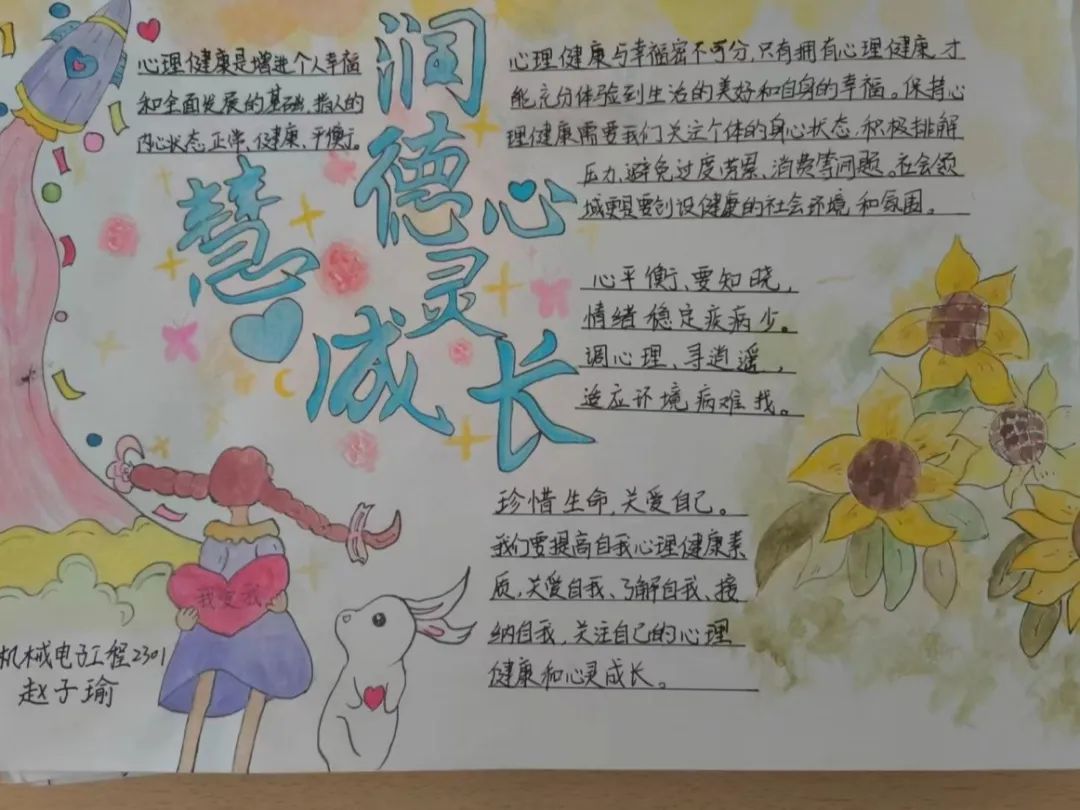 润德心灵
慧心成长
心理健康是增进个人幸福
和全面发展的基础,指人的
内心状态正常、健康、平衡。
心理健康与幸福密不可分,只有拥有心理健康,才
能充分体验到生活的美好和自身的幸福。保持心
理健康需要我们关注个体的身心状态,积极排解
压力,避免过度劳累、消费等问题。社会领
域更是要创设健康的社会环境和氛围。
心平衡、要知晓,
情绪稳定疾病少。
调心理、寻逍遥,
适应环境病难找。
珍惜生命,关爱自己。
我们要提高自我心理健康素
质,关爱自我、了解自我、接
纳自我,关注自己的心理
健康和心灵成长。
我爱我
机械电子工程2301
赵子瑜